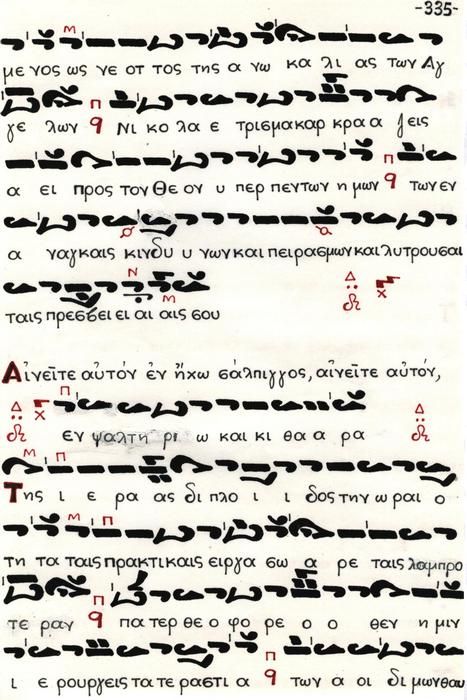 -335-
με νος ως νε οτ τος της α νω κα λι ας των Αγ
γε λων Νι κο λα ε τρισμακαρ κρα α ζεις
α ει προς τον Θε ον υ περ πεντων η μων των εν
α ναγκαις κινδυ υ νων και πειρασμων και λυτρουσαι
ταις πρεσβει ει αι αις σου
Αἰνεῖτε αὐτόν ἐν ἤχω σάλπιγγος, αἰνεῖτε αὐτόν,
εν ψαλτη ρι ω και κι θα α ρα
Της ι ε ρα ας δι πλο ι ι δος την ω ραι ο
τη τα ταις πρακτικαις ειργα σω α ρε ταις λαμπρο
τε ραν πα τερ θε ο φο ρε ο ο θεν η μιν
ι ε ρουργεις τα τε ραστι α των α οι δι μων θαυ